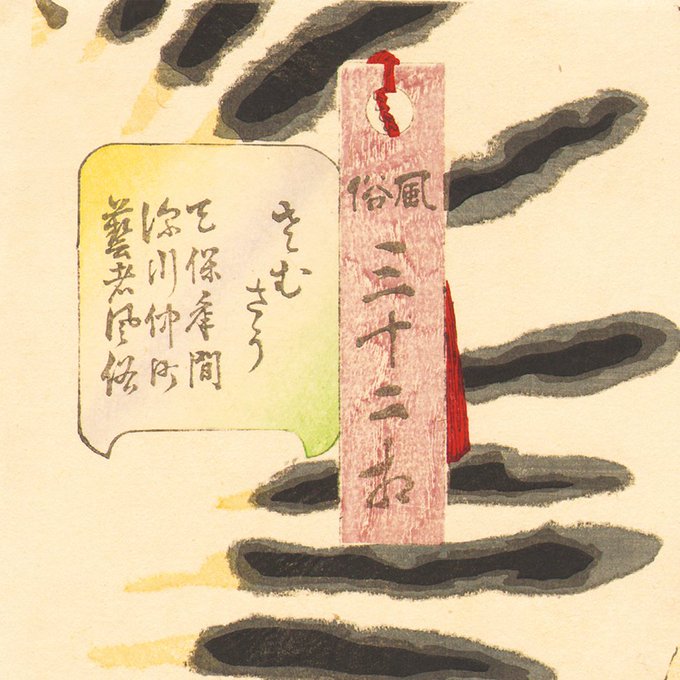 風俗
三十二相
さむ
さう
天保年間
深川仲町
藝者風俗